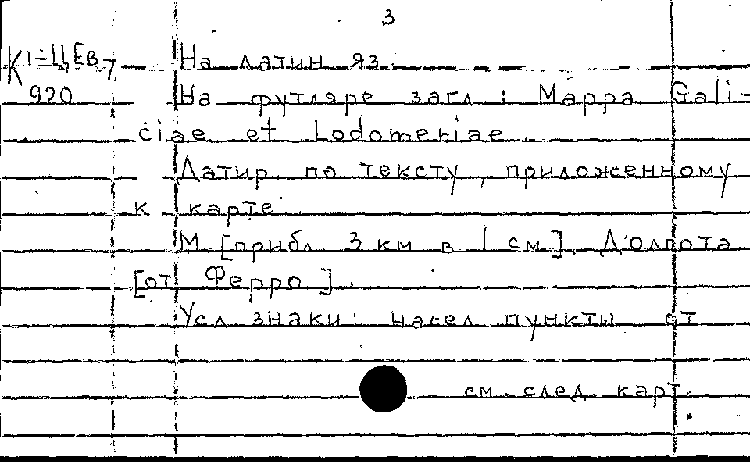 3
К 1-Цев 7 На латин яз.
920 На футляре загл : Mappa Gali-
ciae et Lodomeriae
Датир по тексту, приложенному
к карте
М [прибл 3 км в 1 см]. Долгота
[от Ферро].
Усл знаки: насел пункты от
см. след карт.